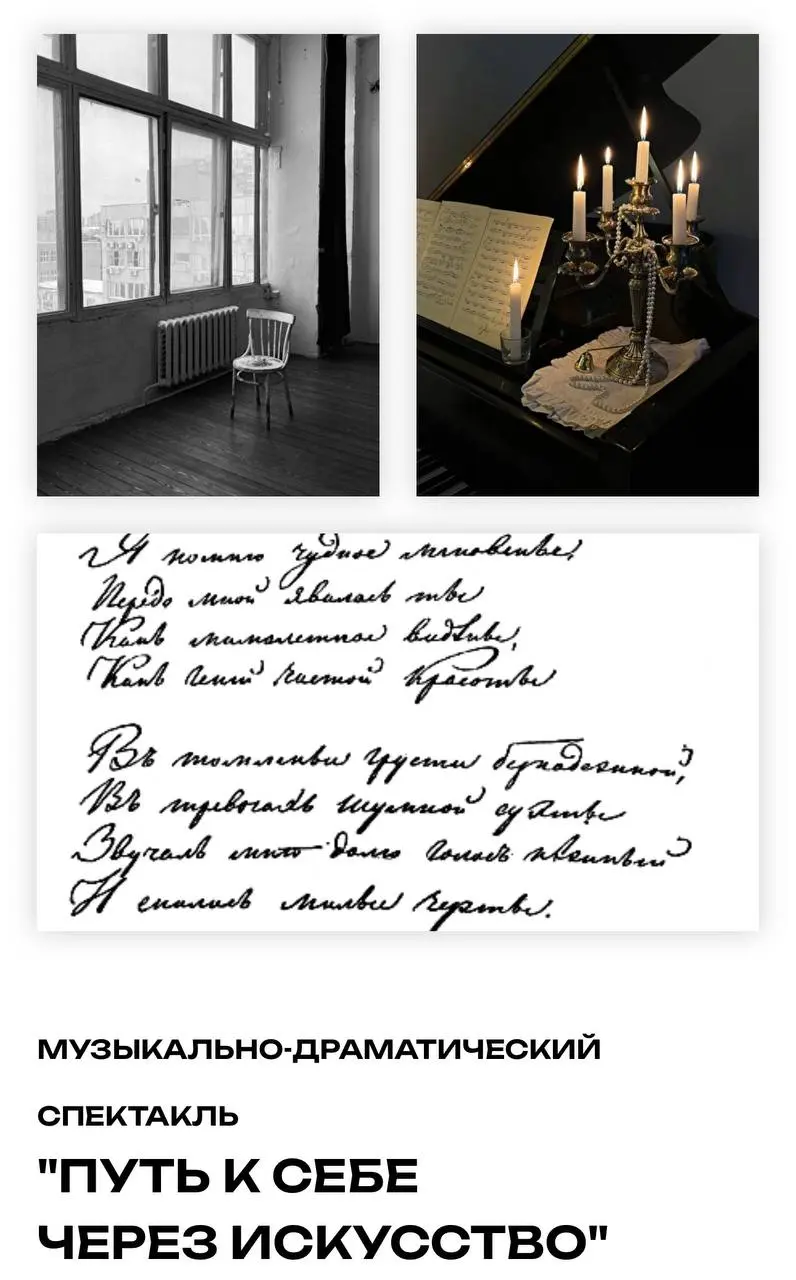 Я помню чудное мгновенье,
Передо мной явилась ты
Какъ мимолетное видѣнье,
Какъ Геній чистой красоты
Въ томленьи грусти безнадежной,
Въ тревогахъ шумной суеты
Звучалъ мнѣ долго голосъ нѣжный
И снились милые черты.
МУЗЫКАЛЬНО-ДРАМАТИЧЕСКИЙ
СПЕКТАКЛЬ
"ПУТЬ К СЕБЕ
ЧЕРЕЗ ИСКУССТВО"